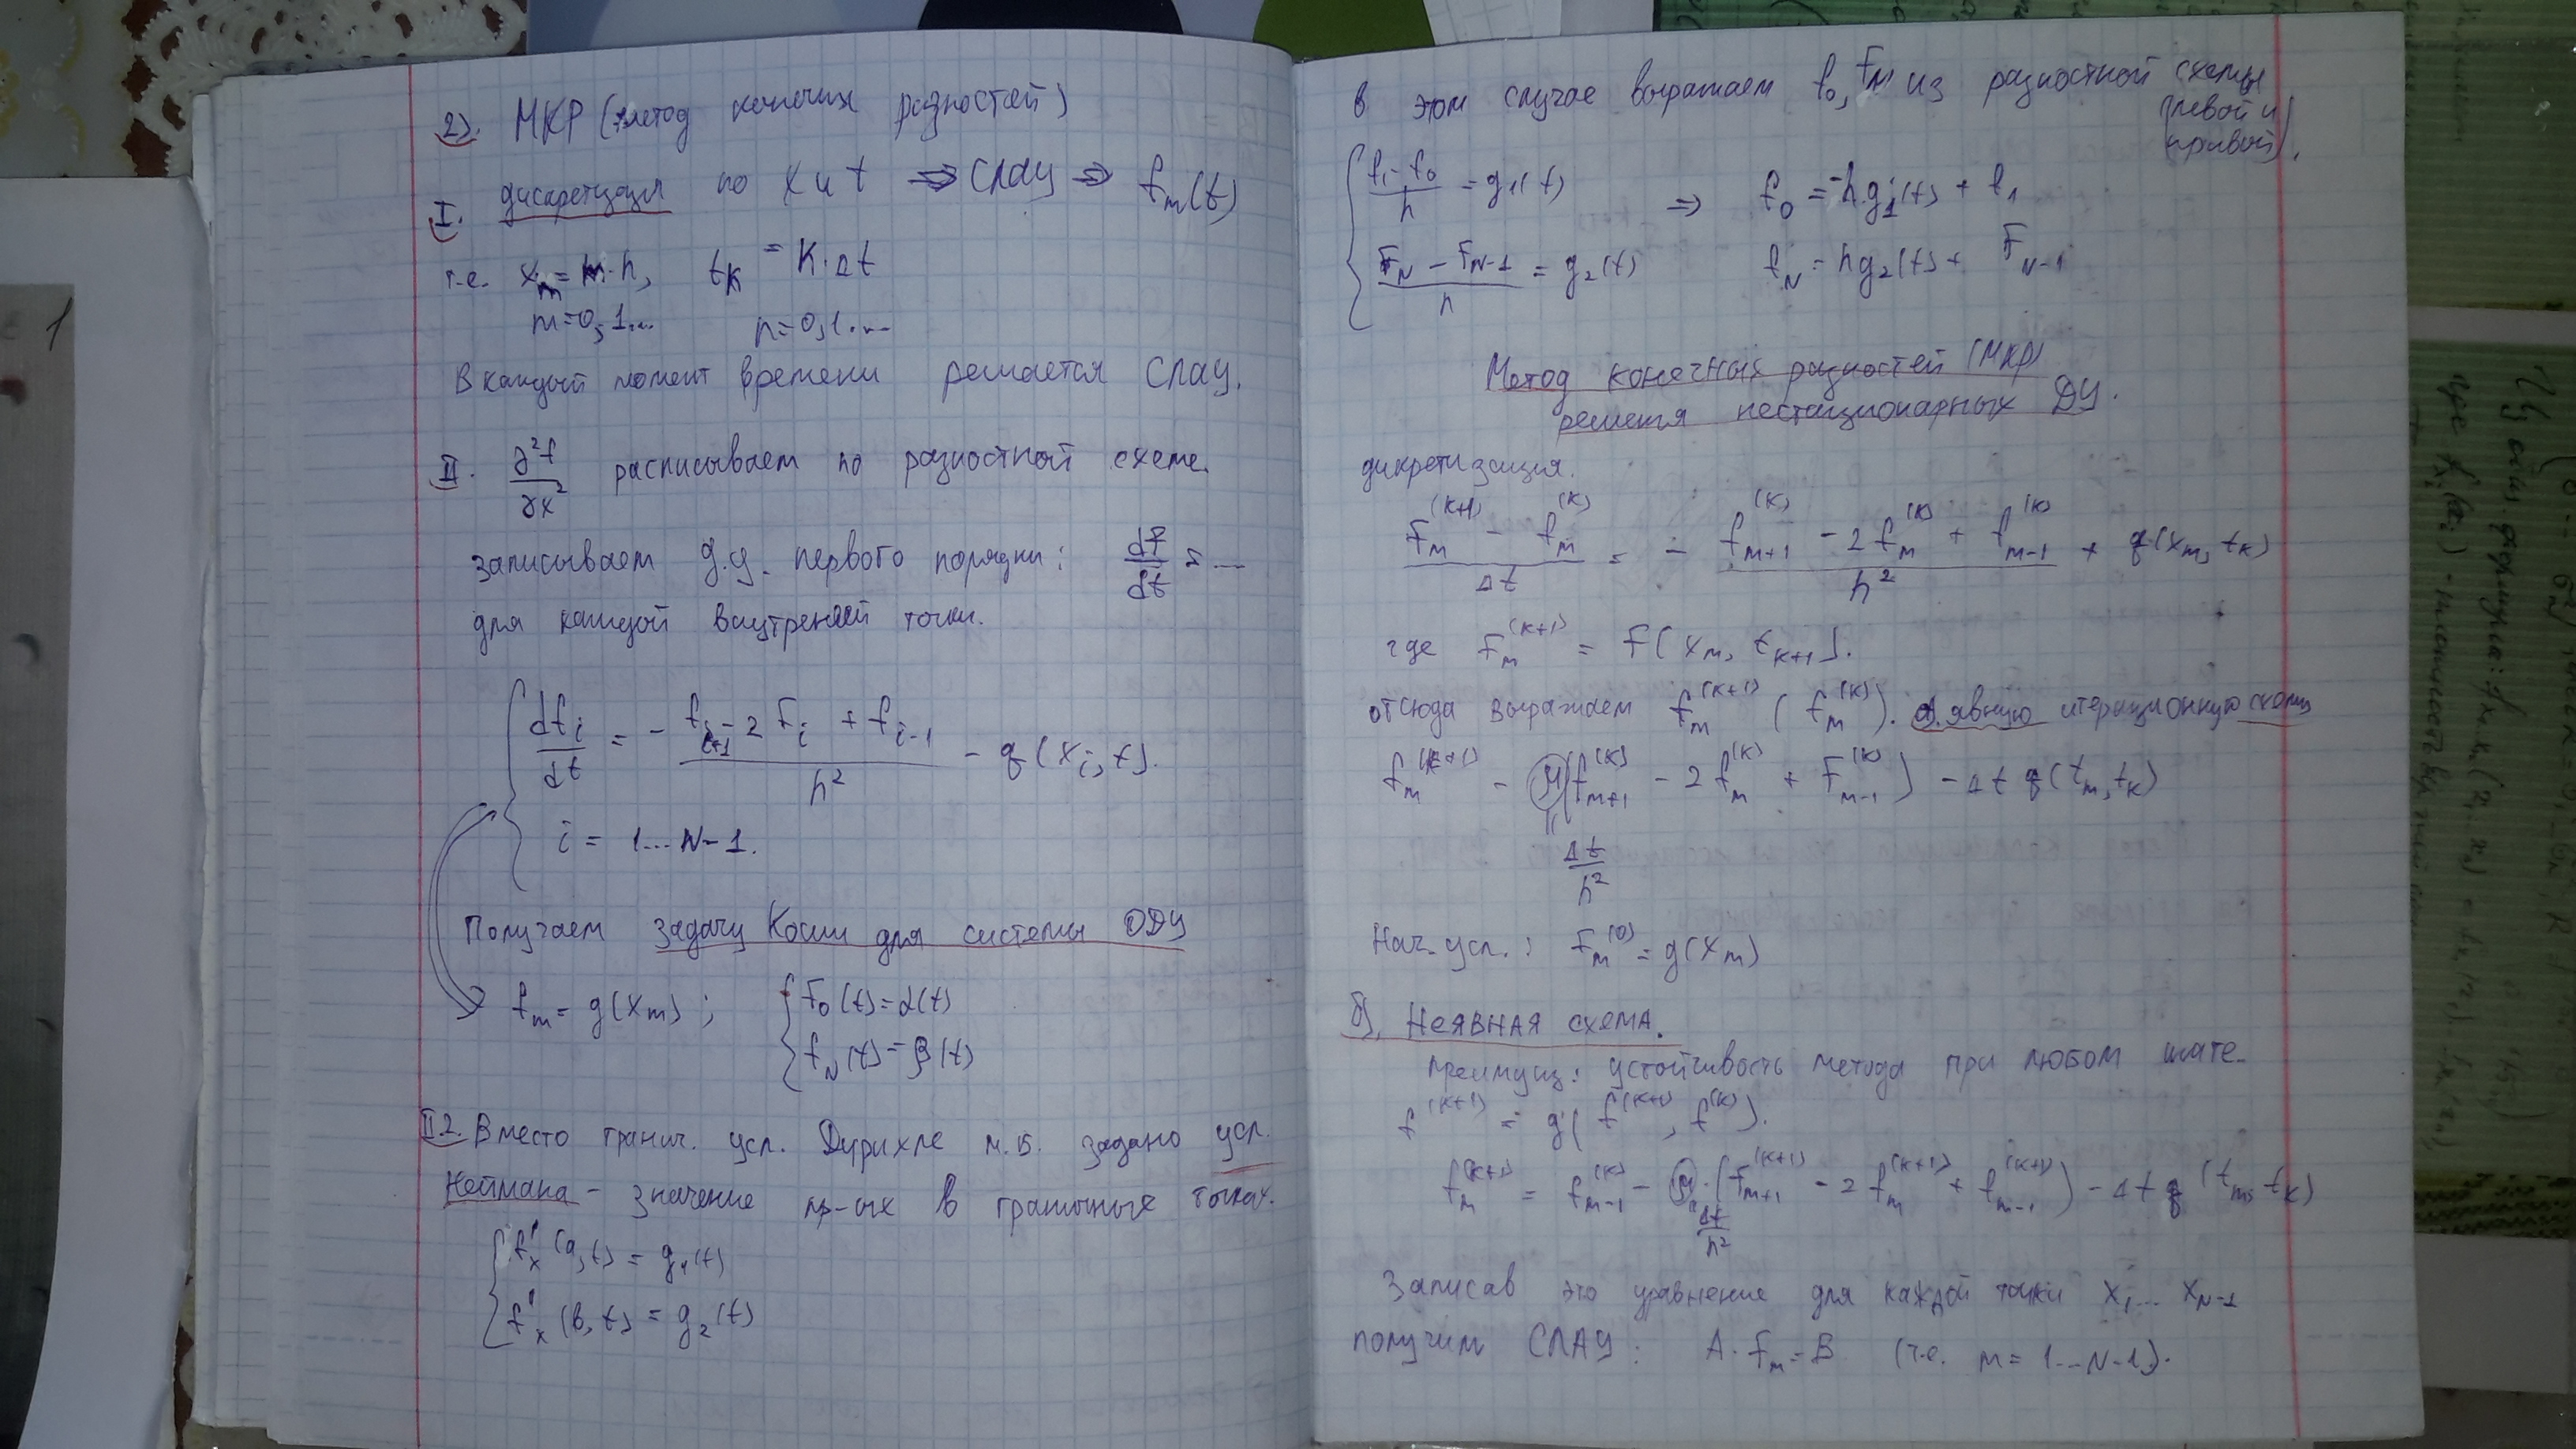 2). МКР (метод конечных разностей)
I. дискретизация по x и t ⇒ СЛАУ ⇒ fm(t)
т.е. xm = m·h, tk = k·Δt
m=0,1... k=0,1...
В каждый момент времени решается СЛАУ.
II. ∂²f/∂x² расписываем по разностной схеме
записываем д.у. первого порядка: df/dt = ...
для каждой внутренней точки.
{ dfi/dt = - (fi+1 - 2fi + fi-1)/h² - q(xi, t).
{ i = 1...N-1.
Получаем задачу Коши для системы ОДУ
fm = g(xm); { f0(t) = α(t)
{ fN(t) = β(t)
II.2. Вместо гранич. усл. Дирихле м.б. задано усл.
Неймана - значение пр-ых в граничных точках.
{ f'x(a,t) = g1(t)
{ f'x(b,t) = g2(t)
в этом случае выражаем f0, fN из разностной схемы
(левой и правой).
{ (f1 - f0)/h = g1(t) ⇒ f0 = -hg1(t) + f1
{ (fN - fN-1)/h = g2(t) fN = hg2(t) + fN-1
Метод конечных разностей (МКР)
решения нестационарных ДУ.
дикретизация.
(fm^(k+1) - fm^(k))/Δt = - (fm+1^(k) - 2fm^(k) + fm-1^(k))/h² + q(xm, tk)
где fm^(k+1) = f(xm, tk+1).
отсюда выражаем fm^(k+1) (fm^(k)). а. явную итерационную схему
fm^(k+1) - M(fm+1^(k) - 2fm^(k) + fm-1^(k)) - Δt q(tm, tk)
Δt/h²
Нач. усл.: fm^(0) = g(xm)
б). Неявная схема.
Преимущ: устойчивость метода при любом шаге.
f^(k+1) = g(f^(k+1), f^(k)).
fm^(k+1) = fm-1^(k) - M·(fm+1^(k+1) - 2fm^(k+1) + fm-1^(k+1)) - Δt q(tm, tk)
Δt/h²
Записав это уравнение для каждой точки x1... xN-1
получим СЛАУ: A·fm = B (т.е. m = 1...N-1).